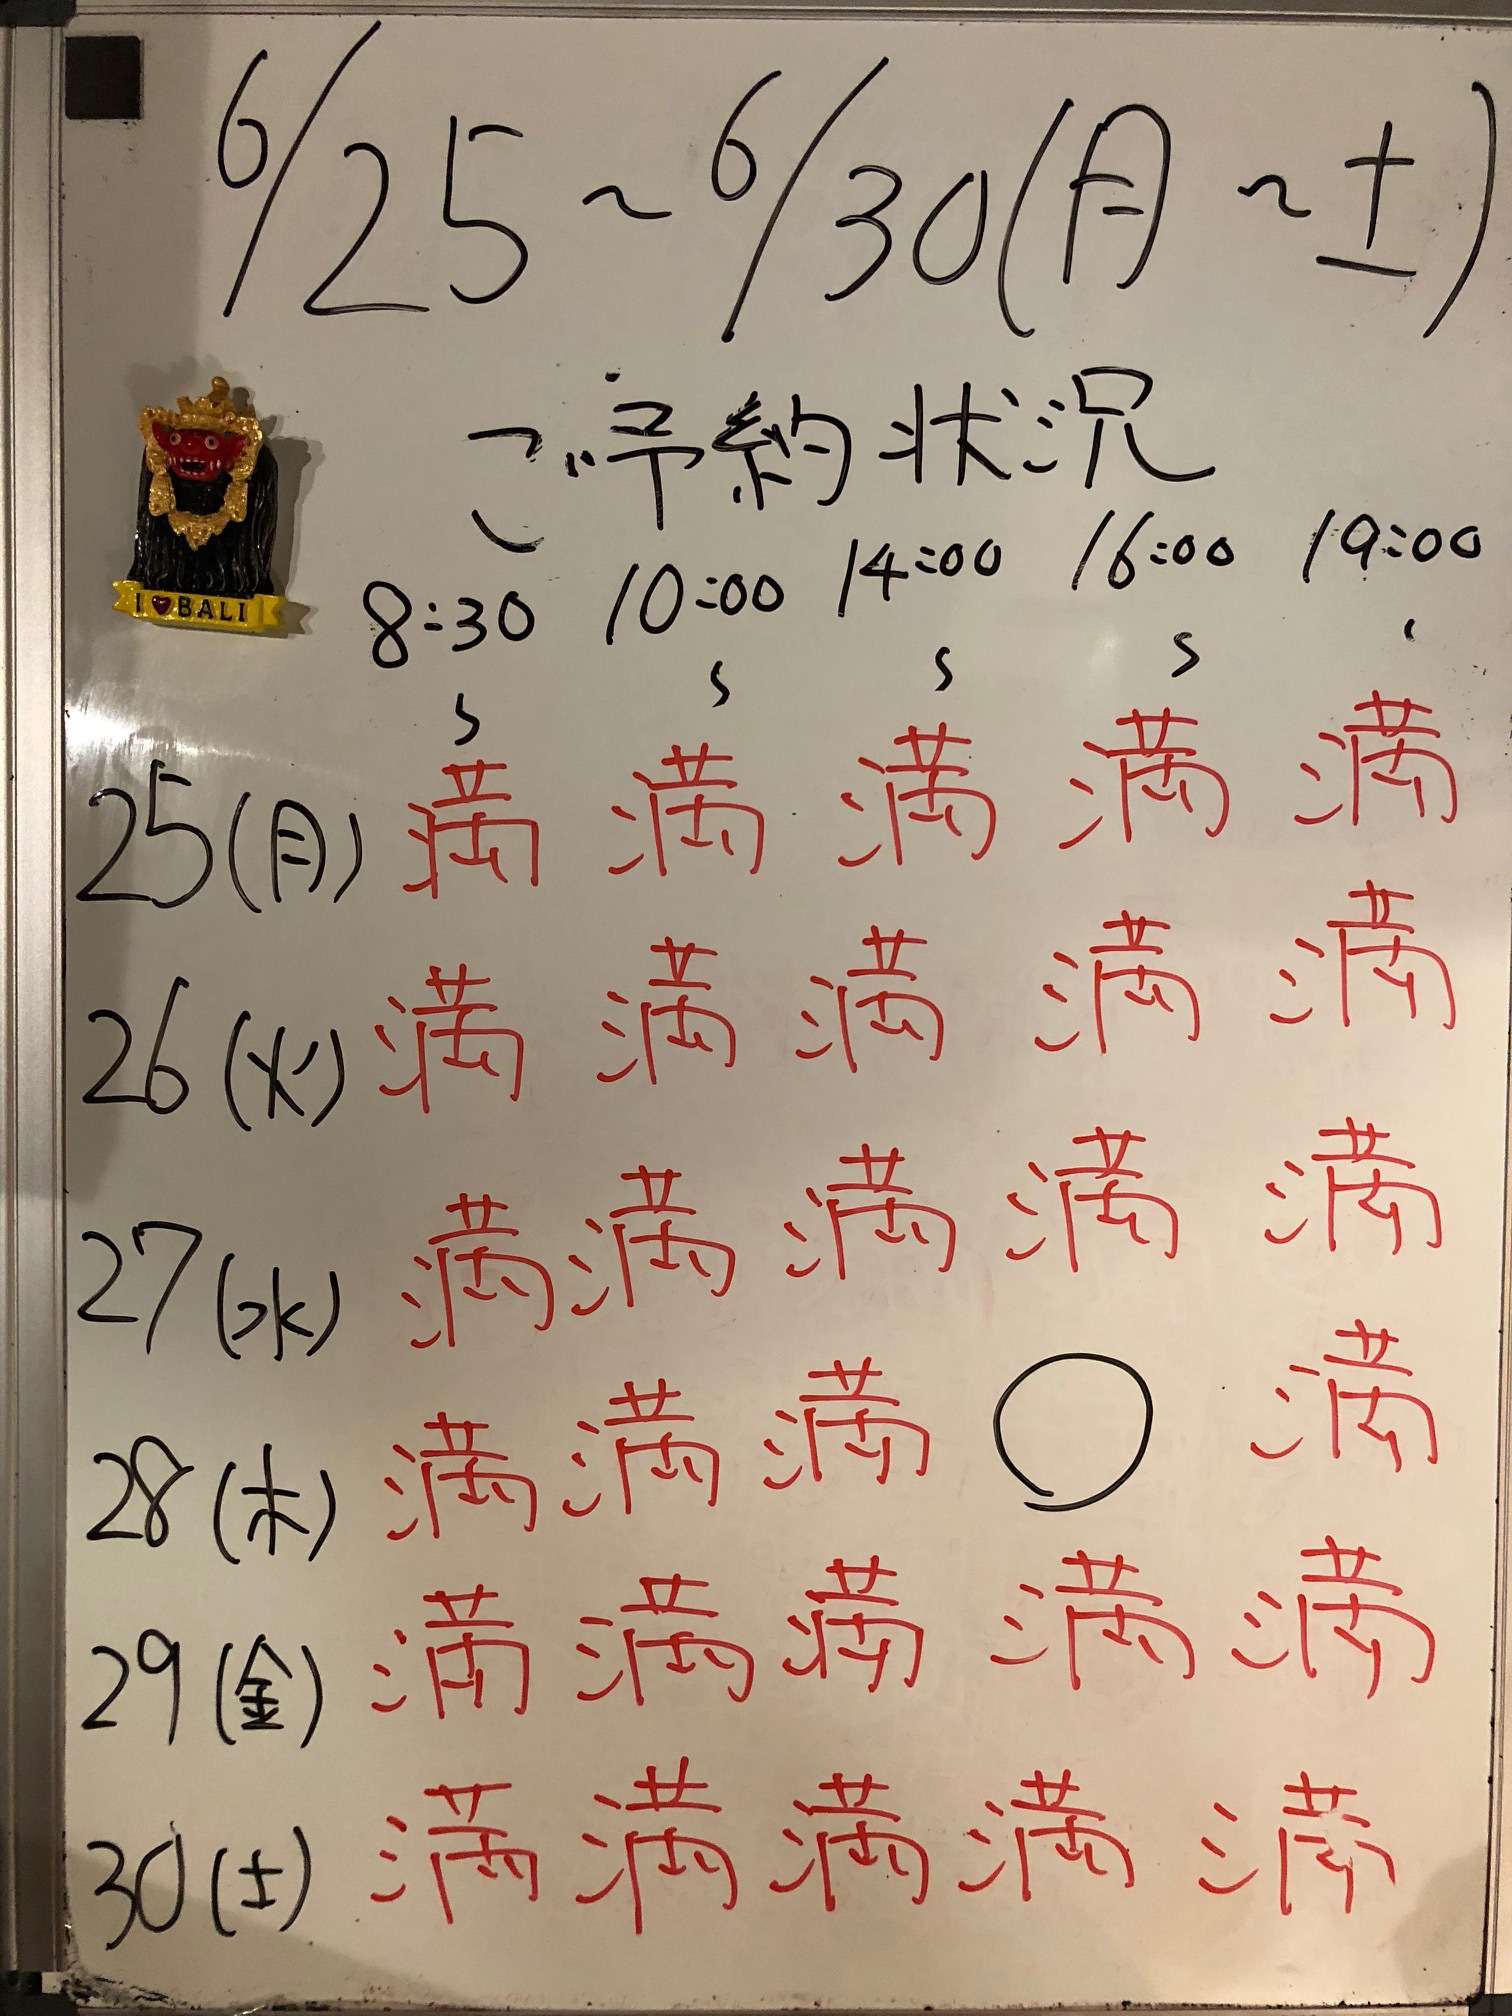 6/25〜6/30(月〜土)
ご予約状況
I ♥ BALI
8:30 10:00 14:00 16:00 19:00
〜 〜 〜 〜 〜
25(月) 満 満 満 満 満
26(火) 満 満 満 満 満
27(水) 満 満 満 満 満
28(木) 満 満 満 ◯ 満
29(金) 満 満 満 満 満
30(土) 満 満 満 満 満